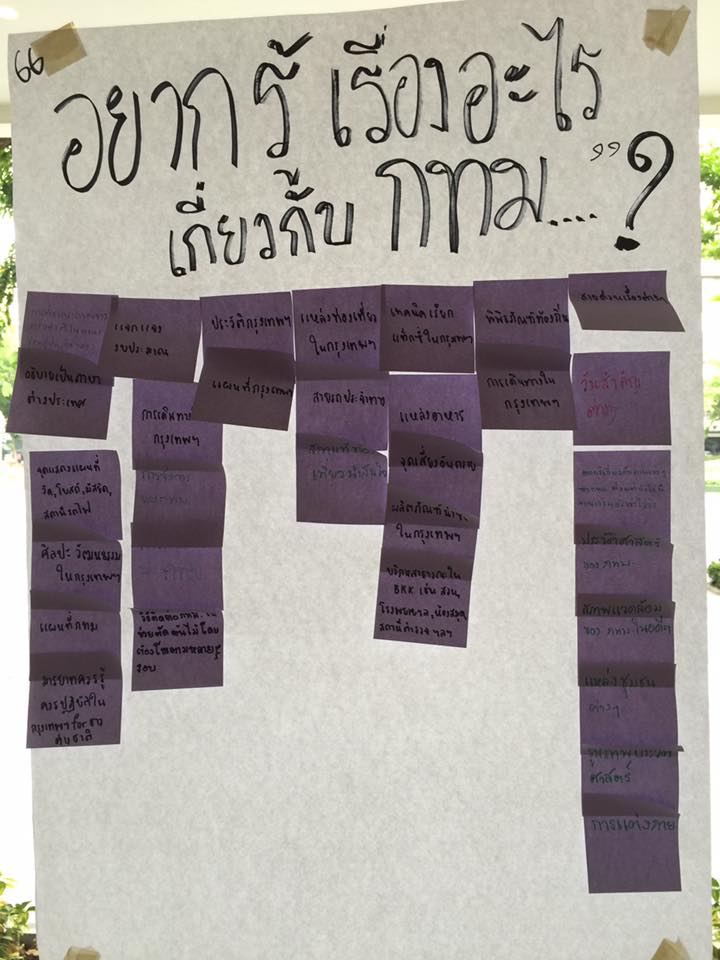 “อยากรู้ เรื่องอะไร
เกี่ยวกับ กทม....”?
อธิบายเป็นภาษา
ต่างประเทศ
จุดแสดงแผนที่
วัด, โบสถ์, มัสยิด,
สถานีรถไฟ
ศิลปะ วัฒนธรรม
ในกรุงเทพฯ
แผนที่ กทม
มารยาทควรรู้
ควรปฏิบัติใน
กรุงเทพฯ for คน
ต่างชาติ
แจกแจง
งบประมาณ
การเดินทาง
กรุงเทพฯ
วิธีติดต่อ กทม.
ช่วยตัดต้นไม้โดย
ต้องโทรตามหลาย
รอบ
ประวัติกรุงเทพฯ
แผนที่กรุงเทพฯ
แหล่งท่องเที่ยว
ในกรุงเทพฯ
สายรถประจำทาง
สถานที่ท่อง
เที่ยว
เทคนิคเรียก
แท็กซี่ในกรุงเทพฯ
แหล่งอาหาร
จุดเสี่ยงอันตราย
ผลิตภัณฑ์
ในกรุงเทพฯ
บริการสาธารณะใน
BKK เช่น สวน,
โรงพยาบาล, ห้องสมุด,
สถานีตำรวจ ฯลฯ
พิพิธภัณฑ์ท้องถิ่น
การเดินทางใน
กรุงเทพฯ
สายด่วนเรื่องต่างๆ
วันสำคัญ
ต่างๆ
ประวัติศาสตร์
ของ กทม.
สภาพแวดล้อม
ของ กทม. ในอดีต
แหล่งชุมชน
ต่างๆ
ศาสตร์
การแต่งกาย